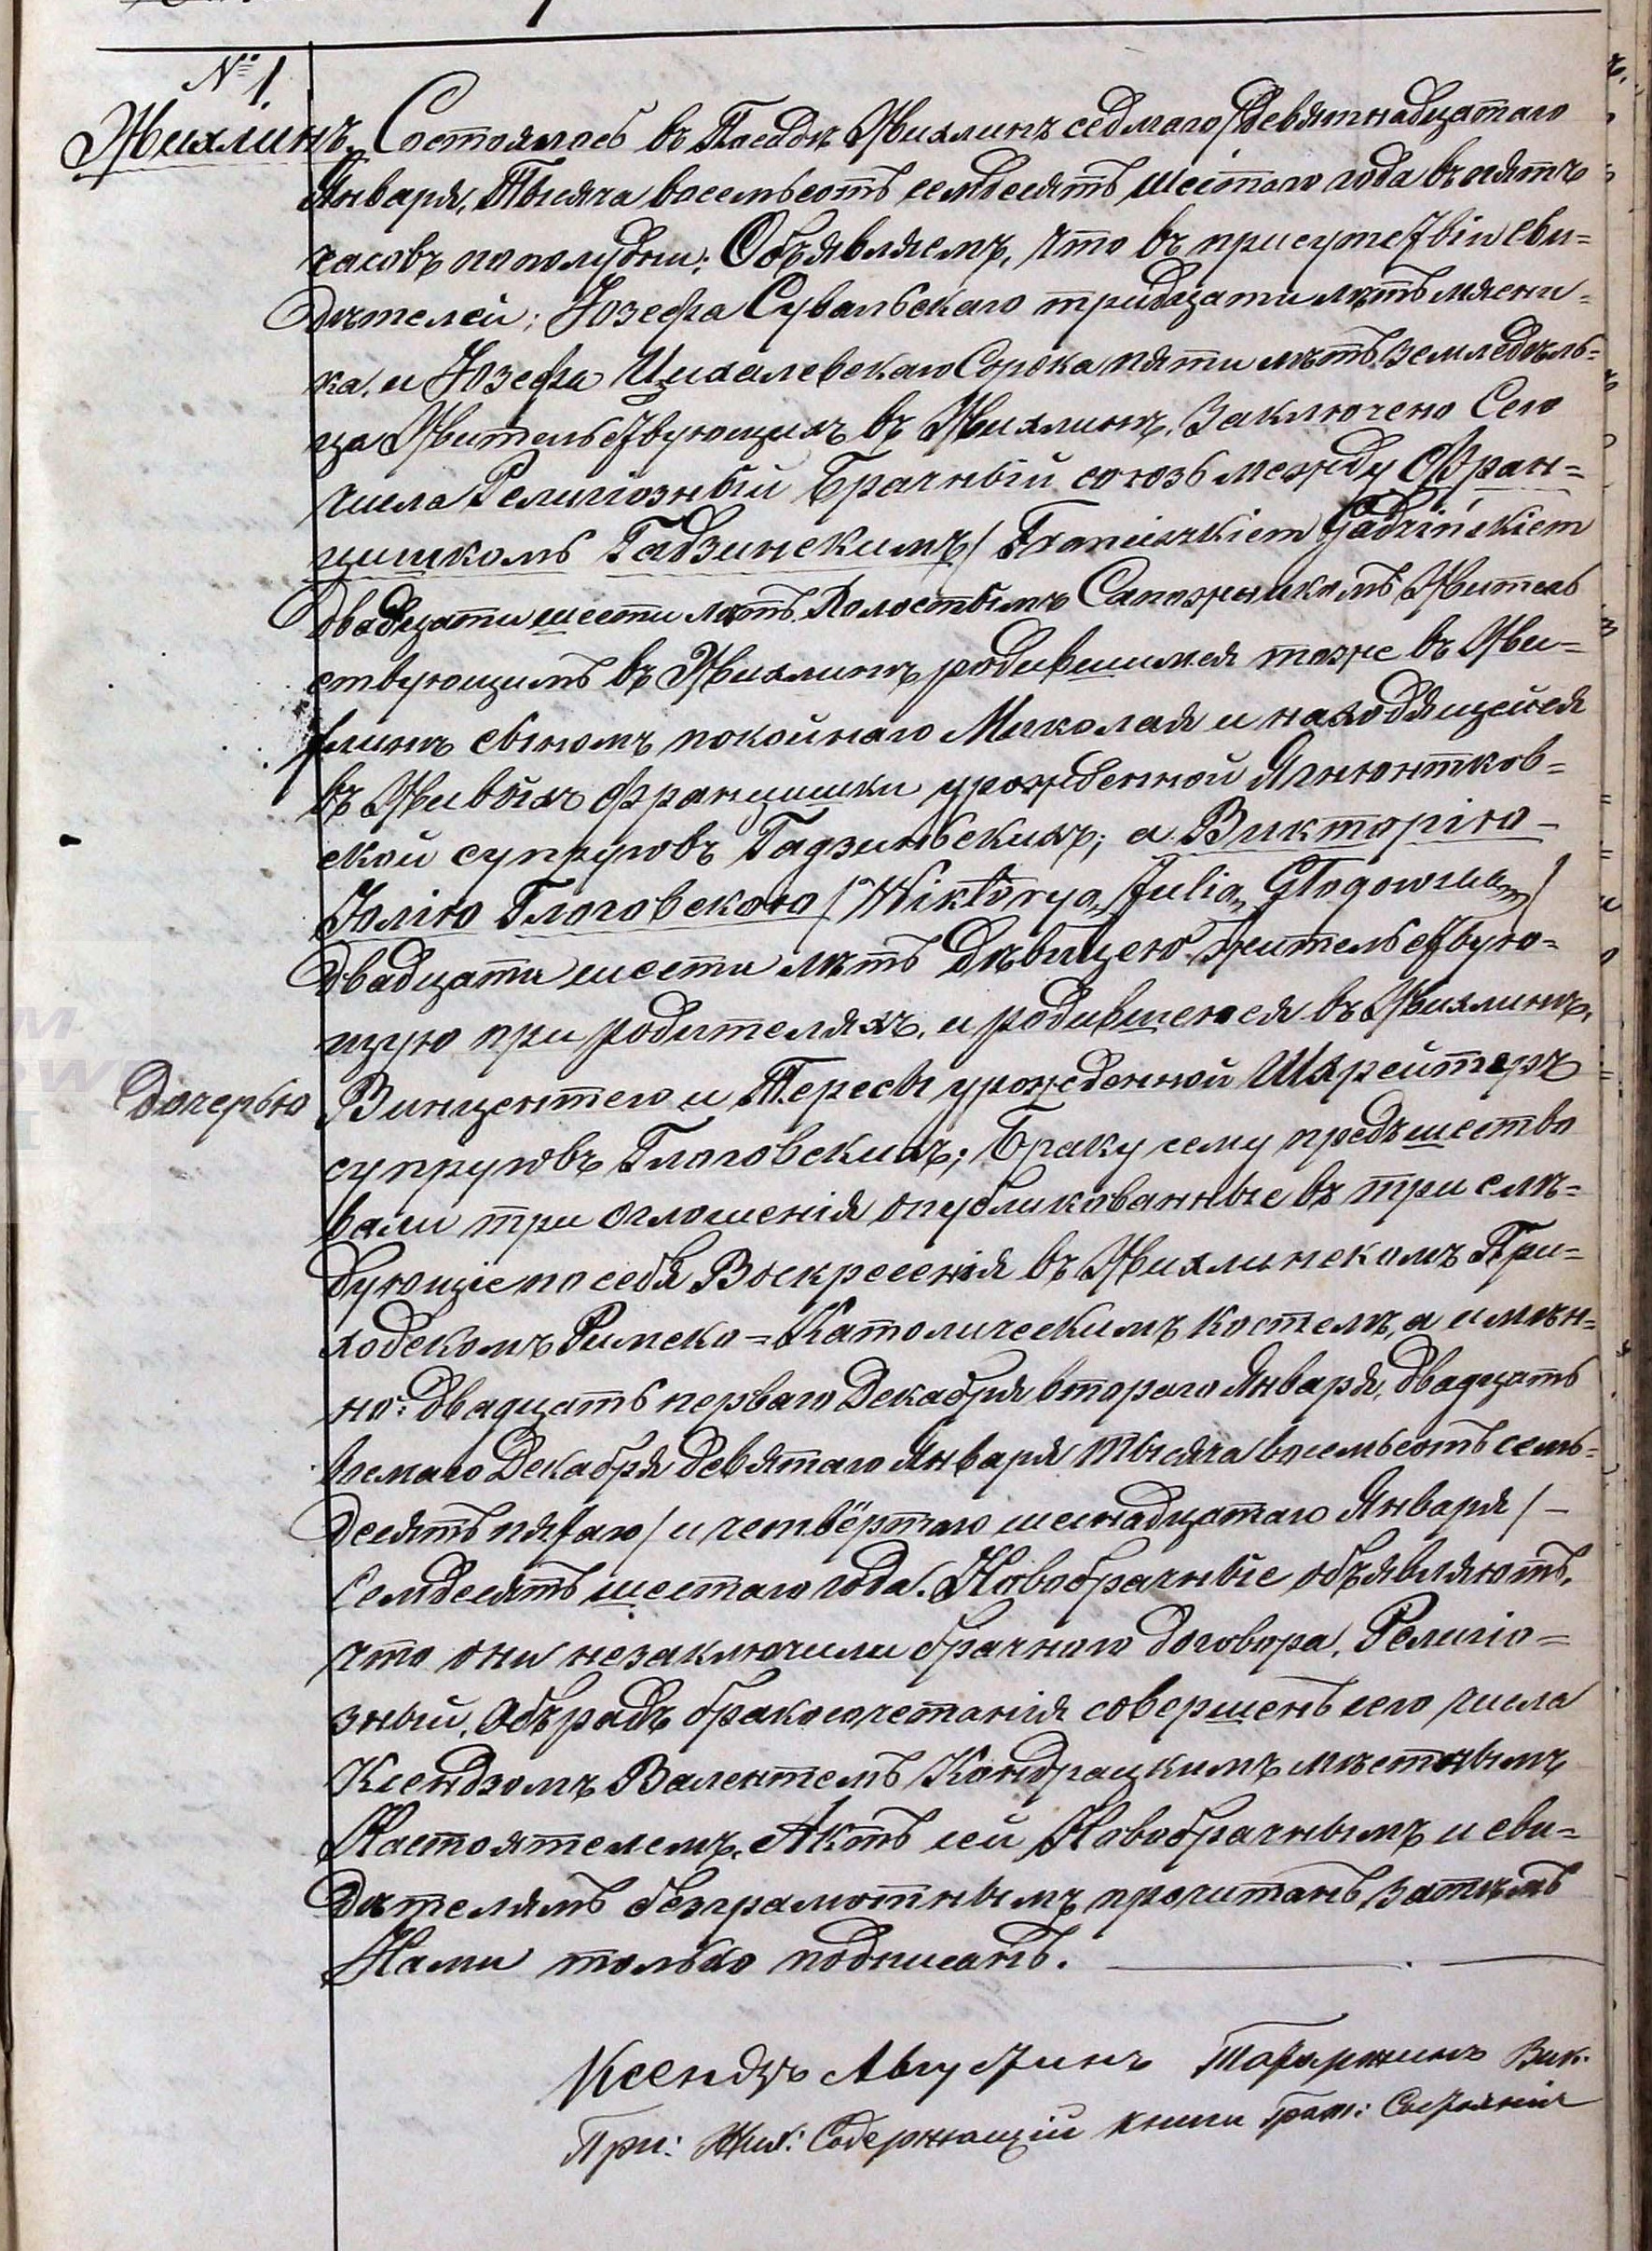 № 1.
Жихлинъ. Состоялось въ Посадѣ Жихлинѣ седмаго/девятнадцатаго
Января, Тысяча восемьсотъ семдесятъ шестаго года въ пять
часовъ пополудни; Объявляемъ, что въ присутствіи сви=
дѣтелей; Юзефа Сувальскаго тридцати лѣтъ мясни=
ка, и Юзефа Цихалевскаго Сорока пяти лѣтъ земледѣль=
ца Жительствующихъ въ Жихлинѣ, Заключено Сего
числа Религіозный Брачный союзъ между Фран=
цишкомъ Гадзинскимъ/Franciszkiem Gadzińskiem
двадцати шести лѣтъ, Холостымъ Сапожникомъ Житель
ствующимъ въ Жихлинѣ родившимся тоже въ Жи=
хлинѣ сыномъ покойнаго Миколая и находящейся
въ Живыхъ Францишки урожденной Ягнюнтков=
ской супруговъ Гадзиньскихъ; а Викторіею
Юліею Глоговскою/Wiktoryą Julią Głogowską/
двадцати шести лѣтъ Дѣвицею жительствую=
щую при родителяхъ, и родившеюся въ Жихлинѣ,
дочерью Винцентего и Тересы урожденной Шрейтеръ
супруговъ Глоговскихъ; Браку сему предъшество
вали три оглошенія опубликованные въ три слѣ=
дующіе по себя Воскресенія въ Жихлинскомъ При=
ходскомъ Римско=Католическимъ костелѣ, а именн=
но: двадцать перваго Декабря втораго Января, двадцать
восмаго Декабря девятаго Января тысяча восемьсотъ семь=
десятъ пятаго/ и четвёртаго шеснадцатаго Января/
Семдесятъ шестаго года. Новобрачные объявляютъ,
что они незаключили брачного договора. Религіо=
зный, Обърядъ бракосочетанія совершенъ сего числа
Ксендзомъ Валентемъ Кондрацкимъ мѣстнымъ
Настоятелемъ. Актъ сей Новобрачнымъ и сви=
дѣтелямъ безграмотнымъ прочитанъ, затѣмъ
Нами только подписанъ.
Ксендзъ Августинъ Вик.
При: Жих: Содержащій книги Граж: Состоянія